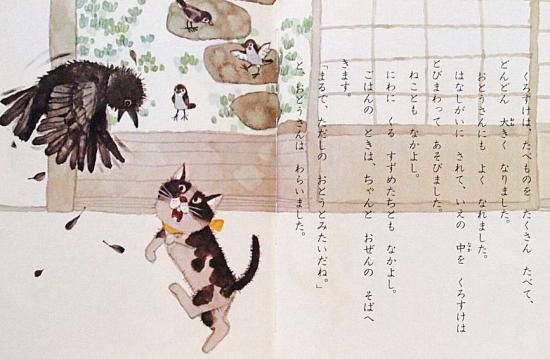 くろすけは、たべものを たくさん たべて、
どんどん 大きく なりました。
おとうさんにも よく なれました。
はなしがいに されて、いえの 中を くろすけは
とびまわって あそびました。
ねことも なかよし。
にわに くる すずめたちとも なかよし。
ごはんの ときは、ちゃんと おぜんの そばへ
きます。
「まるで、ただしの おとうとみたいだね。」
と、おとうさんは わらいました。